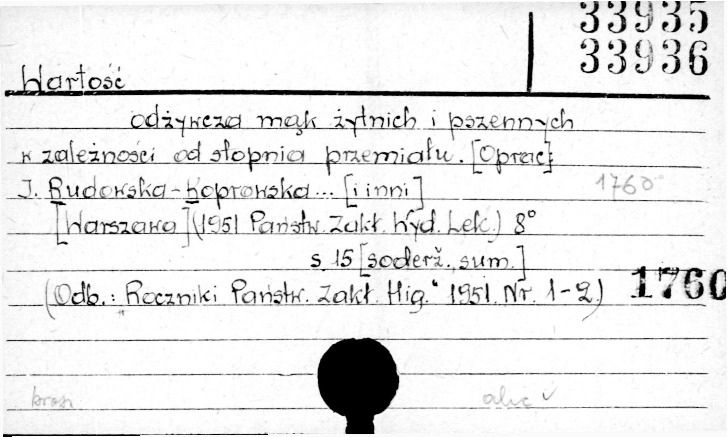 33935
33936
Wartość
odżywcza mąk żytnich i pszennych
w zależności od stopnia przemiału. [Oprac]:
J. Rudowska-Koprowska... [i inni]
1760
[Warszawa] (1951 Państw. Zakł. Wyd. Lek.) 8°
s. 15 [soderž., sum.]
(Odb.: "Roczniki Państw. Zakł. Hig." 1951. Nr. 1-2.)
1760